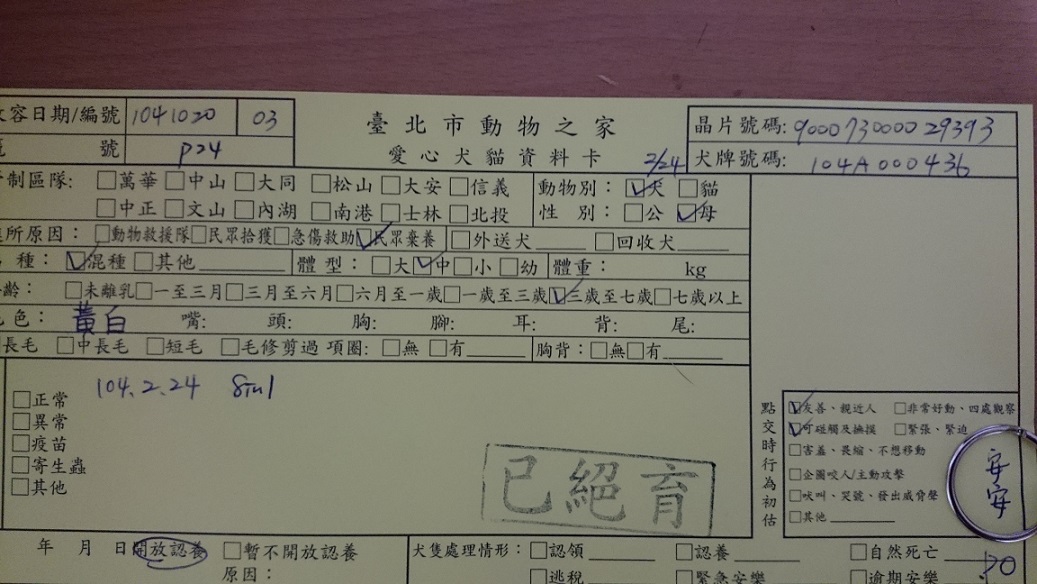 收容日期/編號 1041020 03
號 P24
臺北市動物之家
愛心犬貓資料卡
晶片號碼: 900073000029393
2/24 犬牌號碼: 104A000436
管制區隊: □萬華 □中山 □大同 □松山 □大安 □信義
□中正 □文山 □內湖 □南港 □士林 □北投
動物別: ☑犬 □貓
性別: □公 ☑母
所原因: □動物救援隊 □民眾拾獲 □急傷救助 ☑民眾棄養 □外送犬____ □回收犬____
品種: ☑混種 □其他____ 體型: □大 ☑中 □小 □幼 體重: kg
年齡: □未離乳 □一至三月 □三月至六月 □六月至一歲 □一歲至三歲 ☑三歲至七歲 □七歲以上
毛色: 黃白 嘴: 頭: 胸: 腳: 耳: 背: 尾:
長毛 □中長毛 □短毛 □毛修剪過 項圈: □無 □有____ 胸背: □無 □有____
□正常 104.2.24
□異常
□疫苗
□寄生蟲
□其他
已絕育
點交時行為初估
☑友善、親近人 □非常好動、四處觀察
☑可碰觸及撫摸 □緊張、緊迫
□害羞、畏縮、不想移動
□企圖咬人/主動攻擊
□吠叫、哭號、發出威脅聲
□其他____
安安
年 月 日 開放認養 □暫不開放認養
原因:
犬隻處理情形: □認領____ □認養____ □自然死亡____
□逃脫 □緊急安樂 □逾期安樂